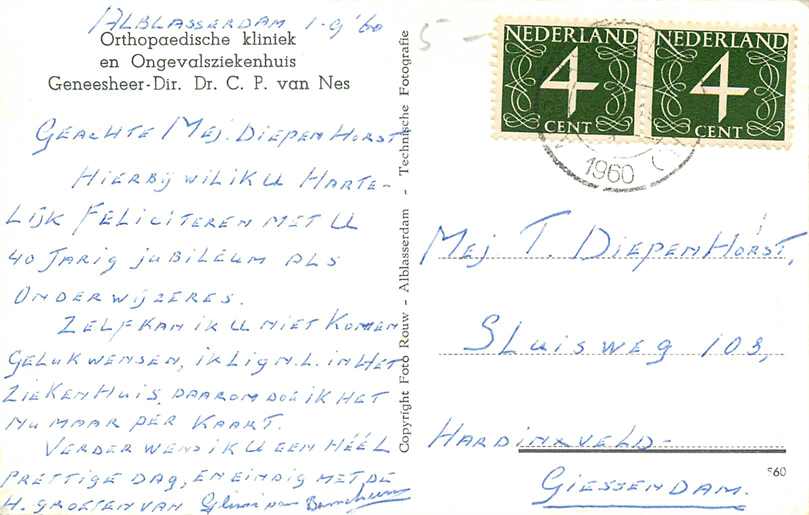 ALBLASSERDAM 1-9 '60
Orthopaedische kliniek
en Ongevalsziekenhuis
Geneesheer-Dir. Dr. C. P. van Nes
GEACHTE MEJ. DIEPENHORST
HIERBIJ WIL IK U HARTE-
LIJK FELICITEREN MET U
40 JARIG JUBILEUM ALS
ONDERWIJZERES.
ZELF KAN IK U NIET KOMEN
GELUKWENSEN, IK LIG N.L. IN HET
ZIEKENHUIS, DAAROM DOE IK HET
NU MAAR PER KAART.
VERDER WENS IK U EEN HÉÉL
PRETTIGE DAG, EN EINDIG MET DE
H. GROETEN VAN
Copyright Foto Rouw - Alblasserdam - Technische Fotografie
5 -
NEDERLAND
4
CENT
NEDERLAND
4
CENT
1960
MEJ T. DIEPENHORST,
SLUISWEG 103,
HARDINXVELD-
GIESSENDAM.
560